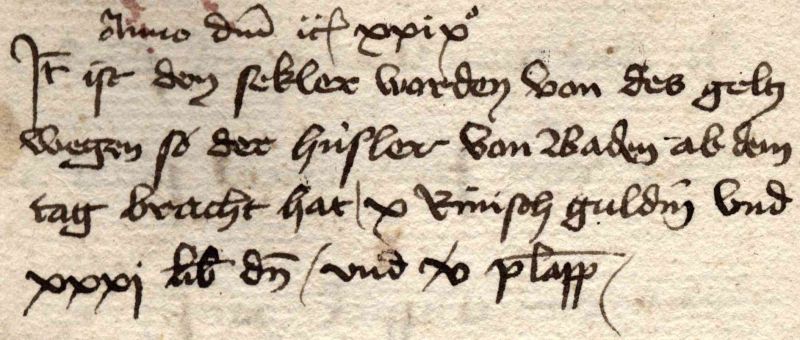 Anno dm̄ iiijc xxix°
Jt̄ ist dem sekler worden von des geltz
wegen so der hüsler von Baden ab dem
tag bracht hat / x Rinisch guldin̄ vnd
xxxj lib dn̄ / vnd xv plapp̄ /